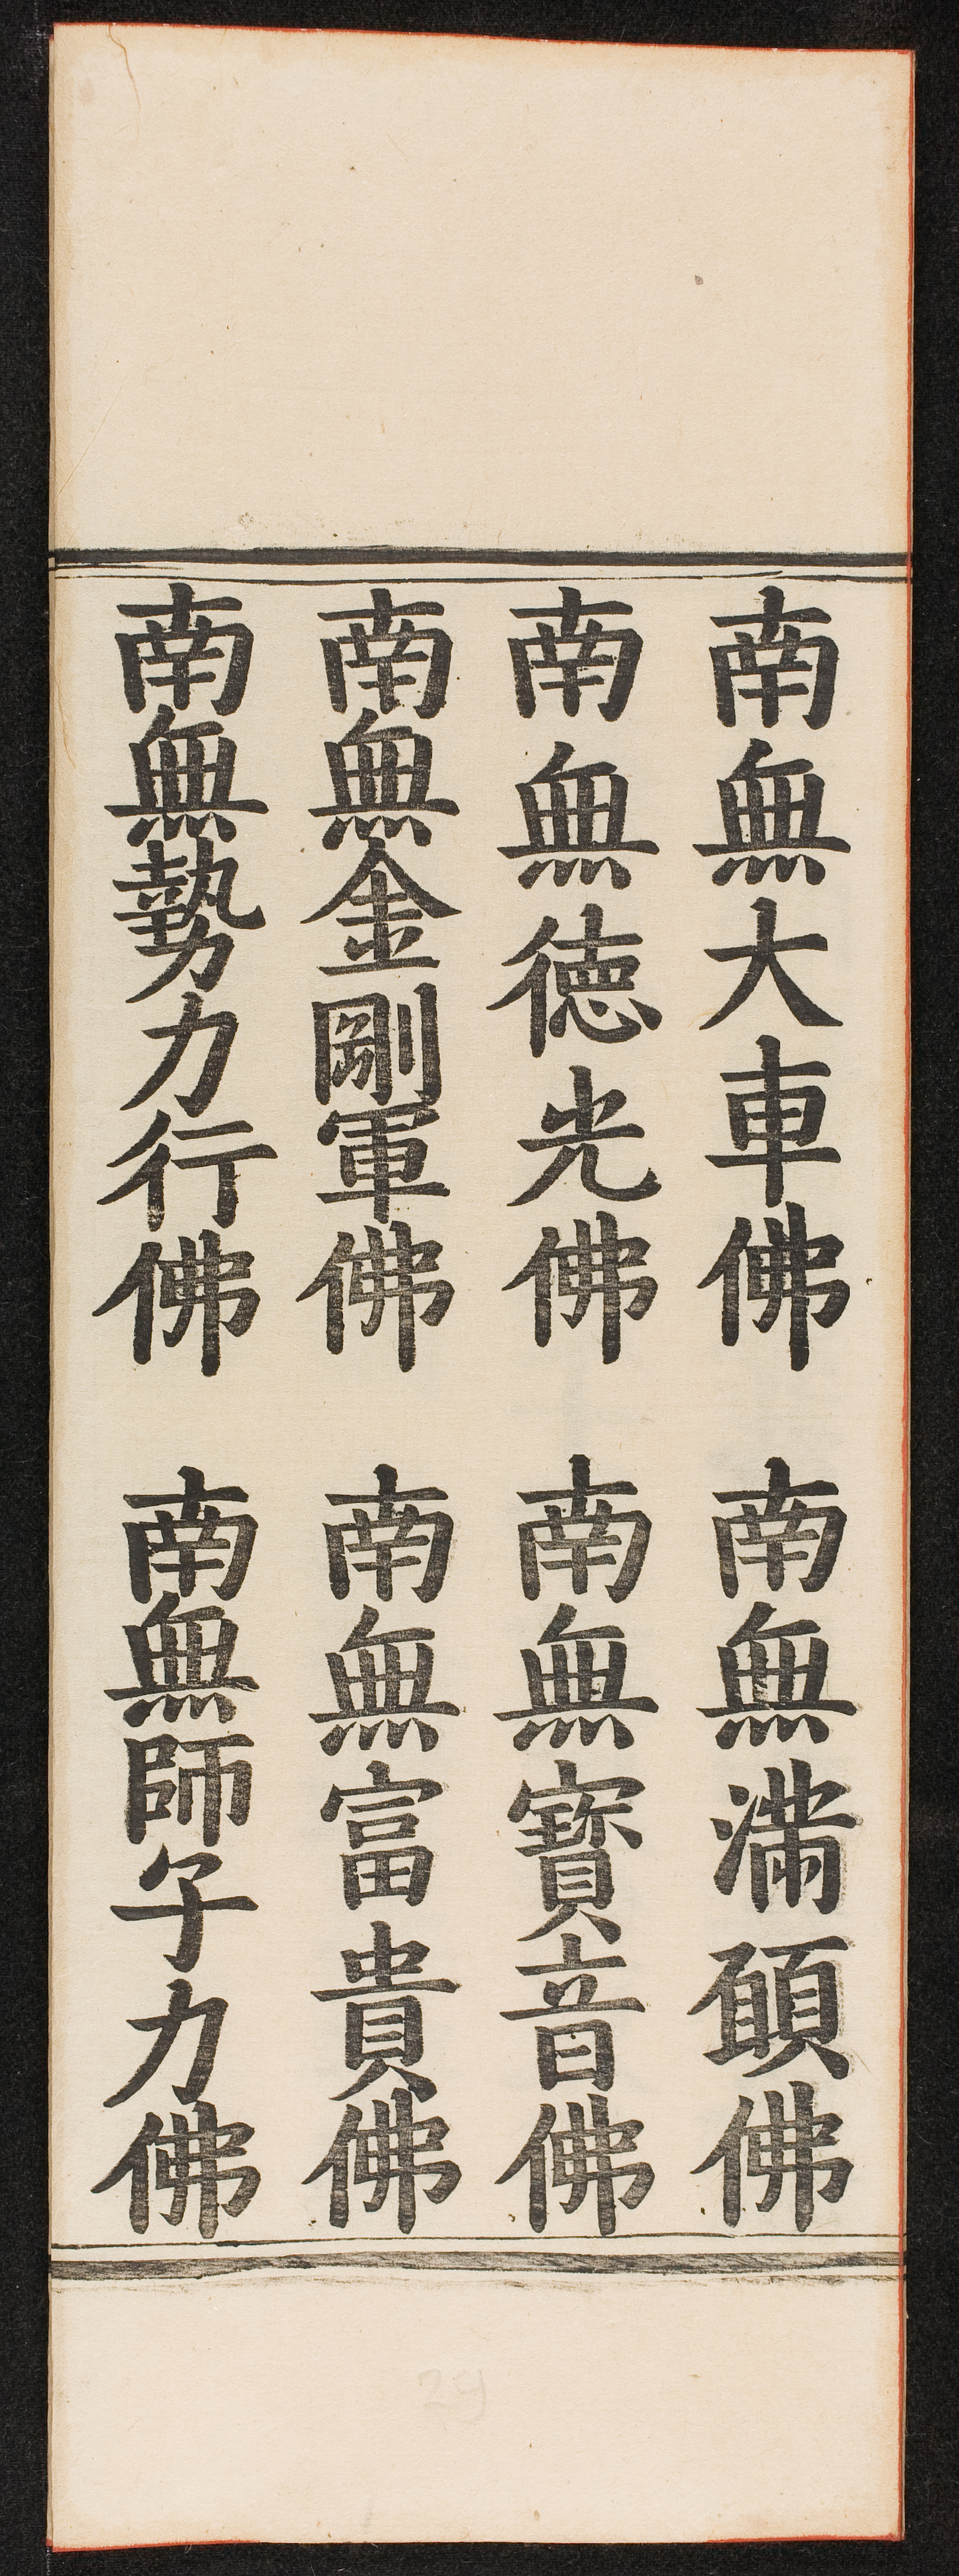 南無大車佛　南無滿願佛
南無德光佛　南無寶音佛
南無金剛軍佛　南無富貴佛
南無勢力行佛　南無師子力佛
24